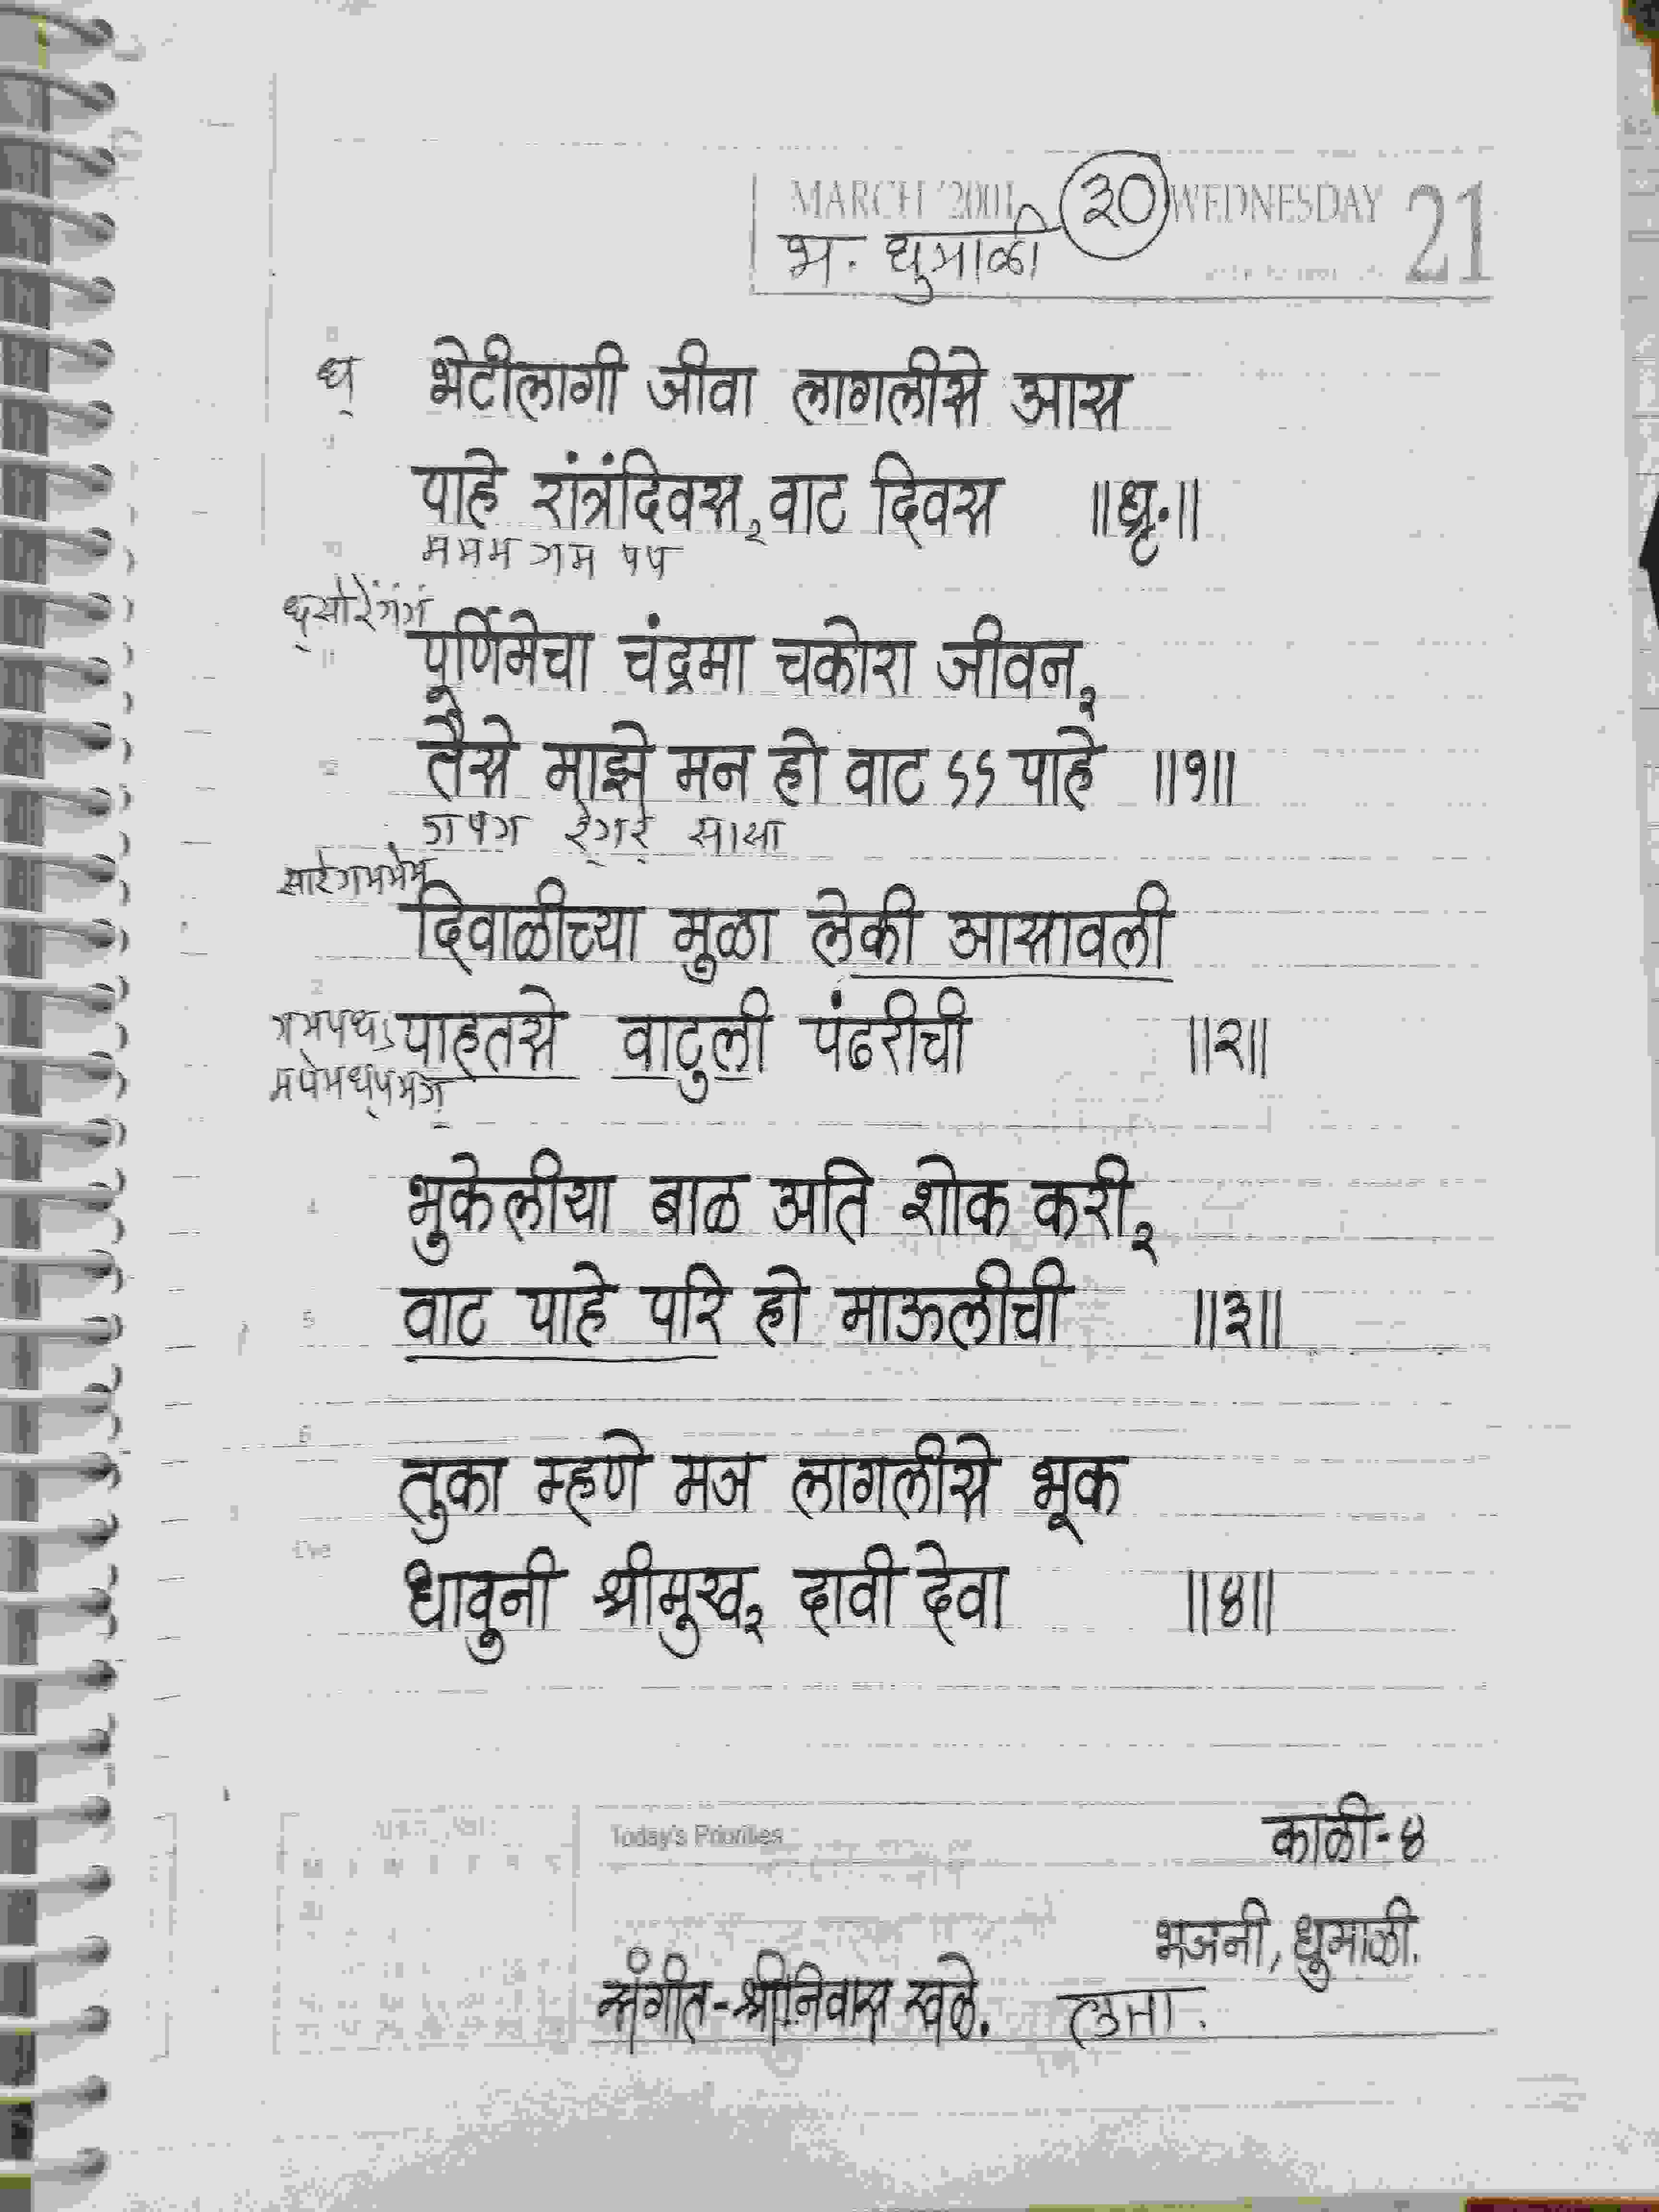 MARCH '2001 ३० WEDNESDAY 21
भ. धुमाळी
ध् भेटीलागी जीवा लागलीसे आस
पाहे रांत्रंदिवस,२ वाट दिवस ॥ध्रृ.॥
म मम गम पप
ध्सारेंगंगं
पुर्णिमेचा चंद्रमा चकोरा जीवन,२
तैसे माझे मन हो वाट ऽऽ पाहे ॥१॥
गपग रे्गरे् सासा
सारेगममेम
दिवाळीच्या मुळा लेकी आसावली
गमपधऽ पाहतसे वाटुली पंढरीची ॥२॥
मपमध्पमग
भुकेलीया बाळ अति शोक करी,२
वाट पाहे परि हो माऊलीची ॥३॥
तुका म्हणे मज लागलीसे भूक
धावुनी श्रीमुख,२ दावी देवा ॥४॥
Today's Priorities
काळी-४
भजनी, धुमाळी.
संगीत-श्रीनिवास खळे. लता.